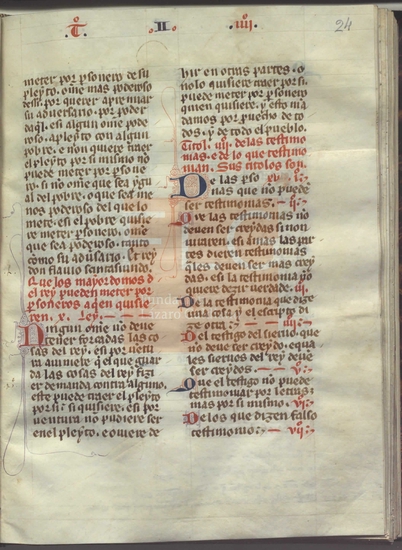 .T.º .II.º .IIII.º 24
meter por personero de su
pleyto, ome mas poderoso
de si por querer apremiar
su adversario por poder
daql. E si algun ome pode
roso, a pleyto con algun
pobre, e non quiere traer
el pleyto por si mismo no
puede meter por persone
ro, si no ome que sea ygu
al del pobre, o que sea me
nos poderoso del que lo
mete. E si el pobre quisie
re meter personero, ome
que sea poderoso, tanto
como su adversario. El rey
don flavio
Que los mayordomos d
el rey pueden meter por
personeros a quien quisie
ren. x. Ley.
Ningun ome no deve
tener forçadas las co
sas del rey. E si por ventu
ra aviniere q el que guar
da las cosas del rey fizi
er demanda contra alguno,
este puede traer el pleyto
por si si quisiere. E si por
ventura no pudiere ser
en el pleyto, e oviere de
hir en otras partes. o
no lo quisiere traer por si,
puede meter por personero
quien quisiere. E esto mā
damos por pruecho de to
dos, y de todo el pueblo.
Titol. IIIIº. de las testimo
nias. e de lo que testimo
nian. Sus titolos son.
De las pso
nas que no puede
ser testimonias. — .ii.ª
Que las testimonias no
deven ser creydas si non
iuraren. E si amas las par
tes dieren testimonias
quales deven ser mas crey
das. e si la testimonia no
quiere dezir verdade. .iii.
De la testimonia que dize
una cosa y el escripto di
ze otra: — .iiii.ª
Del testigo del siervo, que
no deve ser creydo. e qua
les siervos del rey deve
ser creydos. — .v.ª
Que el testigo no puede
testimoniar por letras:
mas por si mismo .vi.ª
De los que dizen falso
testimonio: — .vii.ª